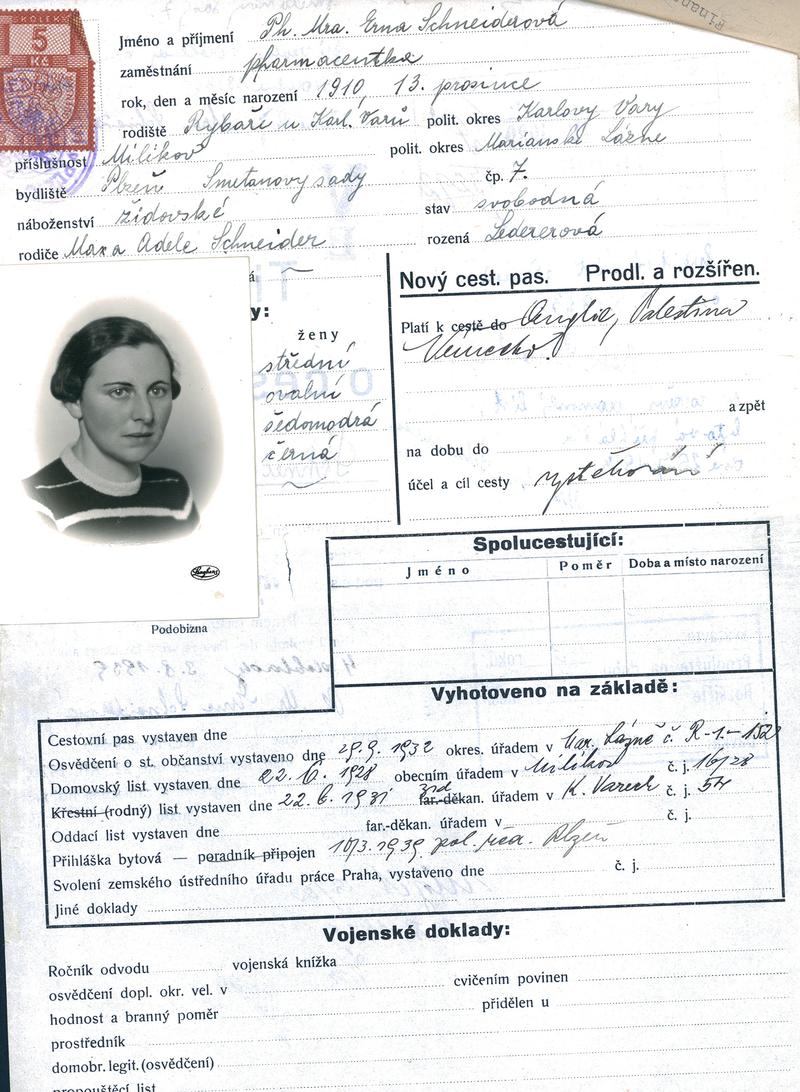 KOLEK
5
Kč
Jméno a příjmení Ph. Mra. Erna Schneiderová
zaměstnání pharmaceutka
rok, den a měsíc narození 1910, 13. prosince
rodiště Rybaře u Karl. Varů polit. okres Karlovy Vary
příslušnost Milikov polit. okres Marianské Lázne
bydliště Plzeň Smetanovy sady čp. 7.
náboženství židovské stav svobodná
rodiče Max a Adele Schneider rozená Ledererová
Nový cest. pas. Prodl. a rozšířen.
Platí k cestě do Anglie, Palestina
Německo.
a zpět
na dobu do
účel a cíl cesty vystěhování
ženy
střední
ovalní
šedomodrá
černá
Podobizna
Spolucestující:
Jméno Poměr Doba a místo narození
Vyhotoveno na základě:
Cestovní pas vystaven dne
Osvědčení o st. občanství vystaveno dne 29.9. 1932 okres. úřadem v Mar. Lázně č. R-1-152
Domovský list vystaven dne 22. 6. 1928 obecním úřadem v Milikov č. j. 16/28
Křestní (rodný) list vystaven dne 22. 6. 1931 žid. far.-děkan. úřadem v K. Varech č. j. 54
Oddací list vystaven dne far.-děkan. úřadem v č. j.
Přihláška bytová — poradník připojen 10/3. 1939 pol. řed. Plzeň
Svolení zemského ústředního úřadu práce Praha, vystaveno dne č. j.
Jiné doklady
Vojenské doklady:
Ročník odvodu vojenská knížka
osvědčení dopl. okr. vel. v cvičením povinen
hodnost a branný poměr přidělen u
prostředník
domobr. legit. (osvědčení)
propouštěcí list